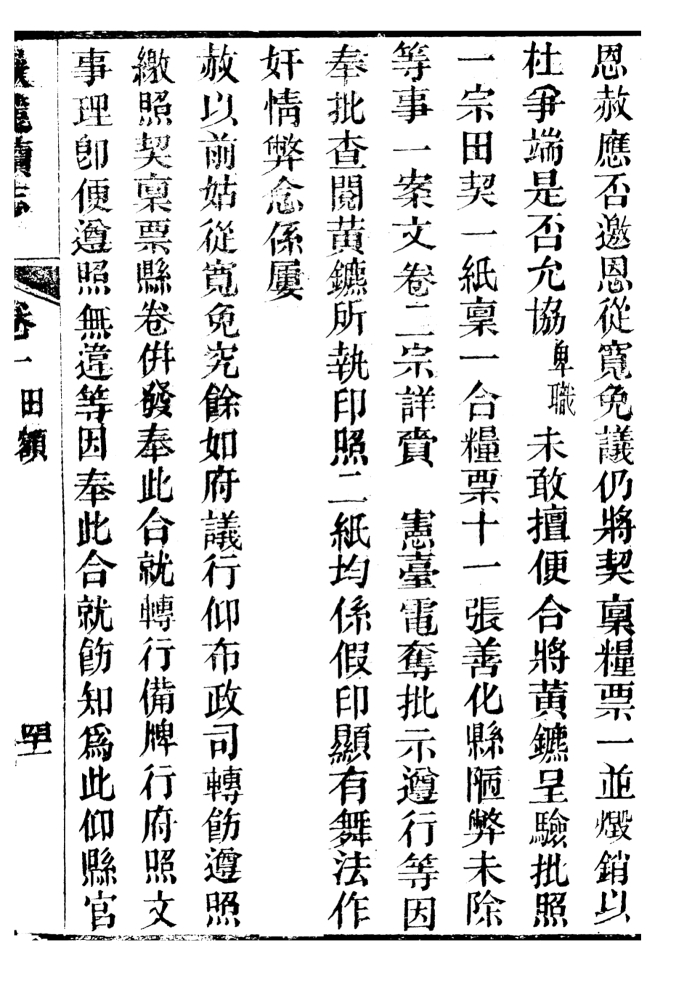 恩赦應否邀恩從寬免議仍將契稟糧票一並燬銷以
杜爭端是否允協卑職未敢擅便合將黃鑣呈驗批照
一宗田契一紙稟一合糧票十一張善化縣陋弊未除
等事一案文卷二宗詳賫　憲臺電奪批示遵行等因
奉批查閱黃鑣所執印照二紙均係假印顯有舞法作
奸情弊念係屢
赦以前姑從寬免究餘如府議行仰布政司轉飭遵照
繳照契稟票縣卷倂發奉此合就轉行備牌行府照文
事理卽便遵照無違等因奉此合就飭知爲此仰縣官
續志
卷一　田額